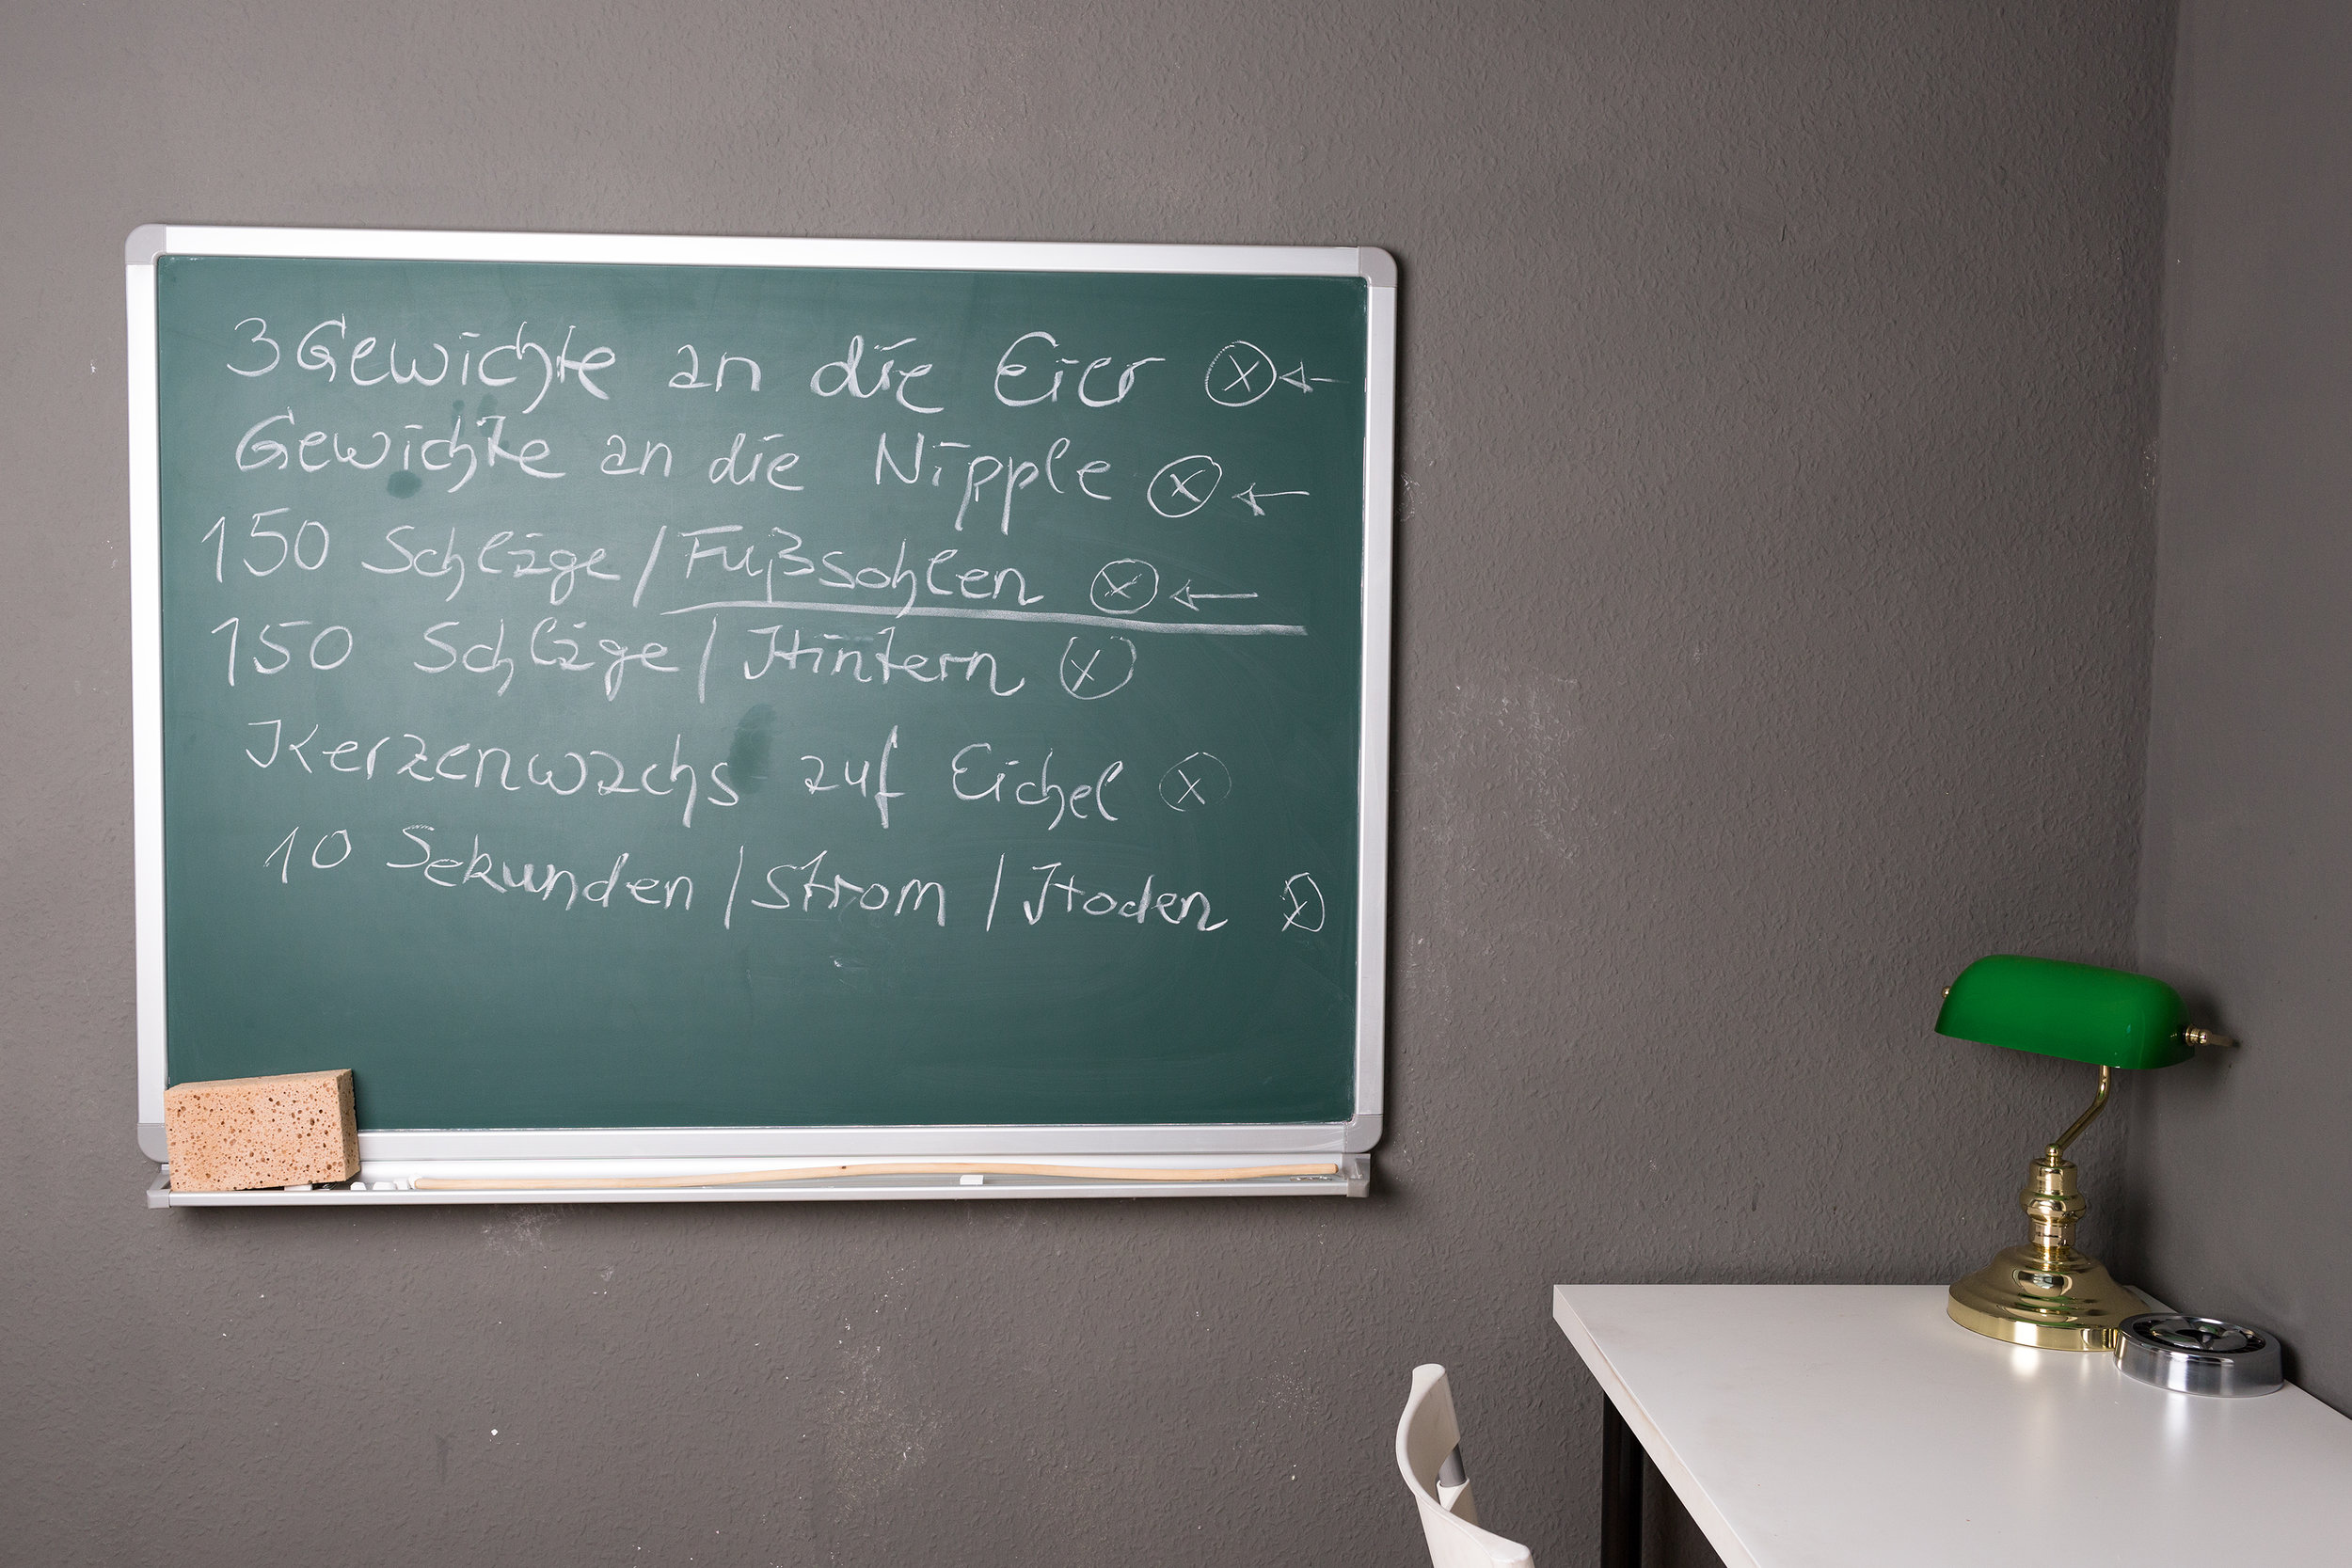 3 Gewichte an die Eier ⓧ ←
Gewichte an die Nipple ⓧ ←
150 Schläge / Fußsohlen ⓧ ←
150 Schläge / Hintern ⓧ
Kerzenwachs auf Eichel ⓧ
10 Sekunden / Strom / Hoden ⓧ